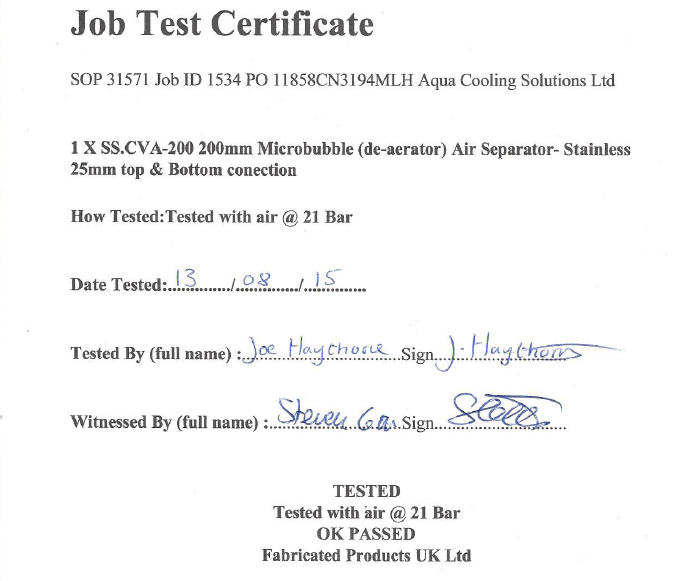 Job Test Certificate
SOP 31571 Job ID 1534 PO 11858CN3194MLH Aqua Cooling Solutions Ltd
1 X SS.CVA-200 200mm Microbubble (de-aerator) Air Separator- Stainless
25mm top & Bottom conection
How Tested:Tested with air @ 21 Bar
Date Tested:..13........./.08........../..15........
Tested By (full name) :..Joe Haythorne..Sign...J. Haythorn
Witnessed By (full name) :..Steven.....Sign....
TESTED
Tested with air @ 21 Bar
OK PASSED
Fabricated Products UK Ltd